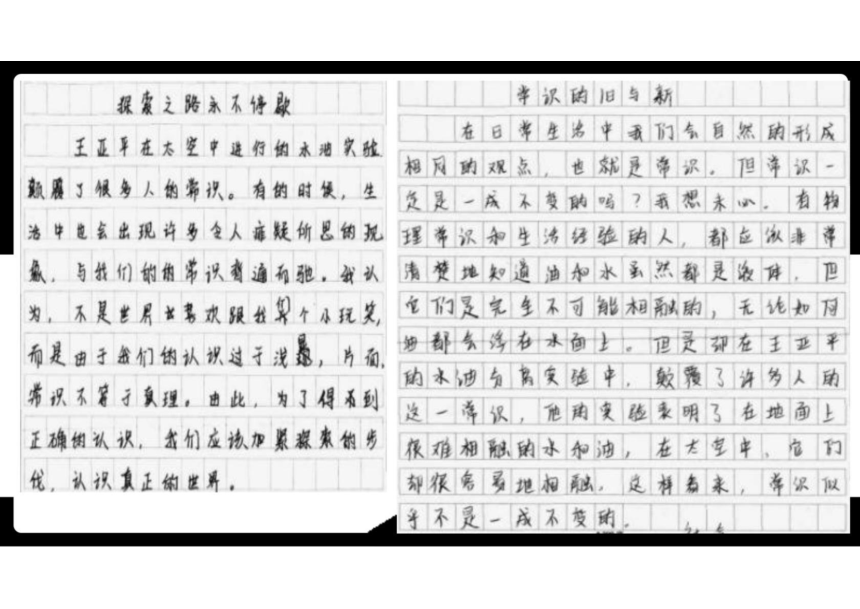 探索之路永不停歇
王亚平在太空中进行的水油实验
颠覆了很多人的常识。有的时候，生
活中也会出现许多令人匪疑所思的现
象，与我们的的常识背道而驰。我认
为，不是世界喜欢跟我们开个小玩笑，
而是由于我们的认识过于浅显，片面，
常识不等于真理。由此，为了得到
正确的认识，我们应该加紧探索的步
伐，认识真正的世界。
常识的旧与新
在日常生活中我们会自然的形成
相同的观点，也就是常识。但常识一
定是一成不变的吗？我想未必。有物
理常识和生活经验的人，都应该非常
清楚地知道油和水虽然都是液体，但
它们是完全不可能相融的，无论如何
油都会浮在水面上。但是却在王亚平
的水油分离实验中，颠覆了许多人的
这一常识，他的实验表明了在地面上
很难相融的水和油，在太空中，它们
却很容易地相融。这样看来，常识似
乎不是一成不变的。